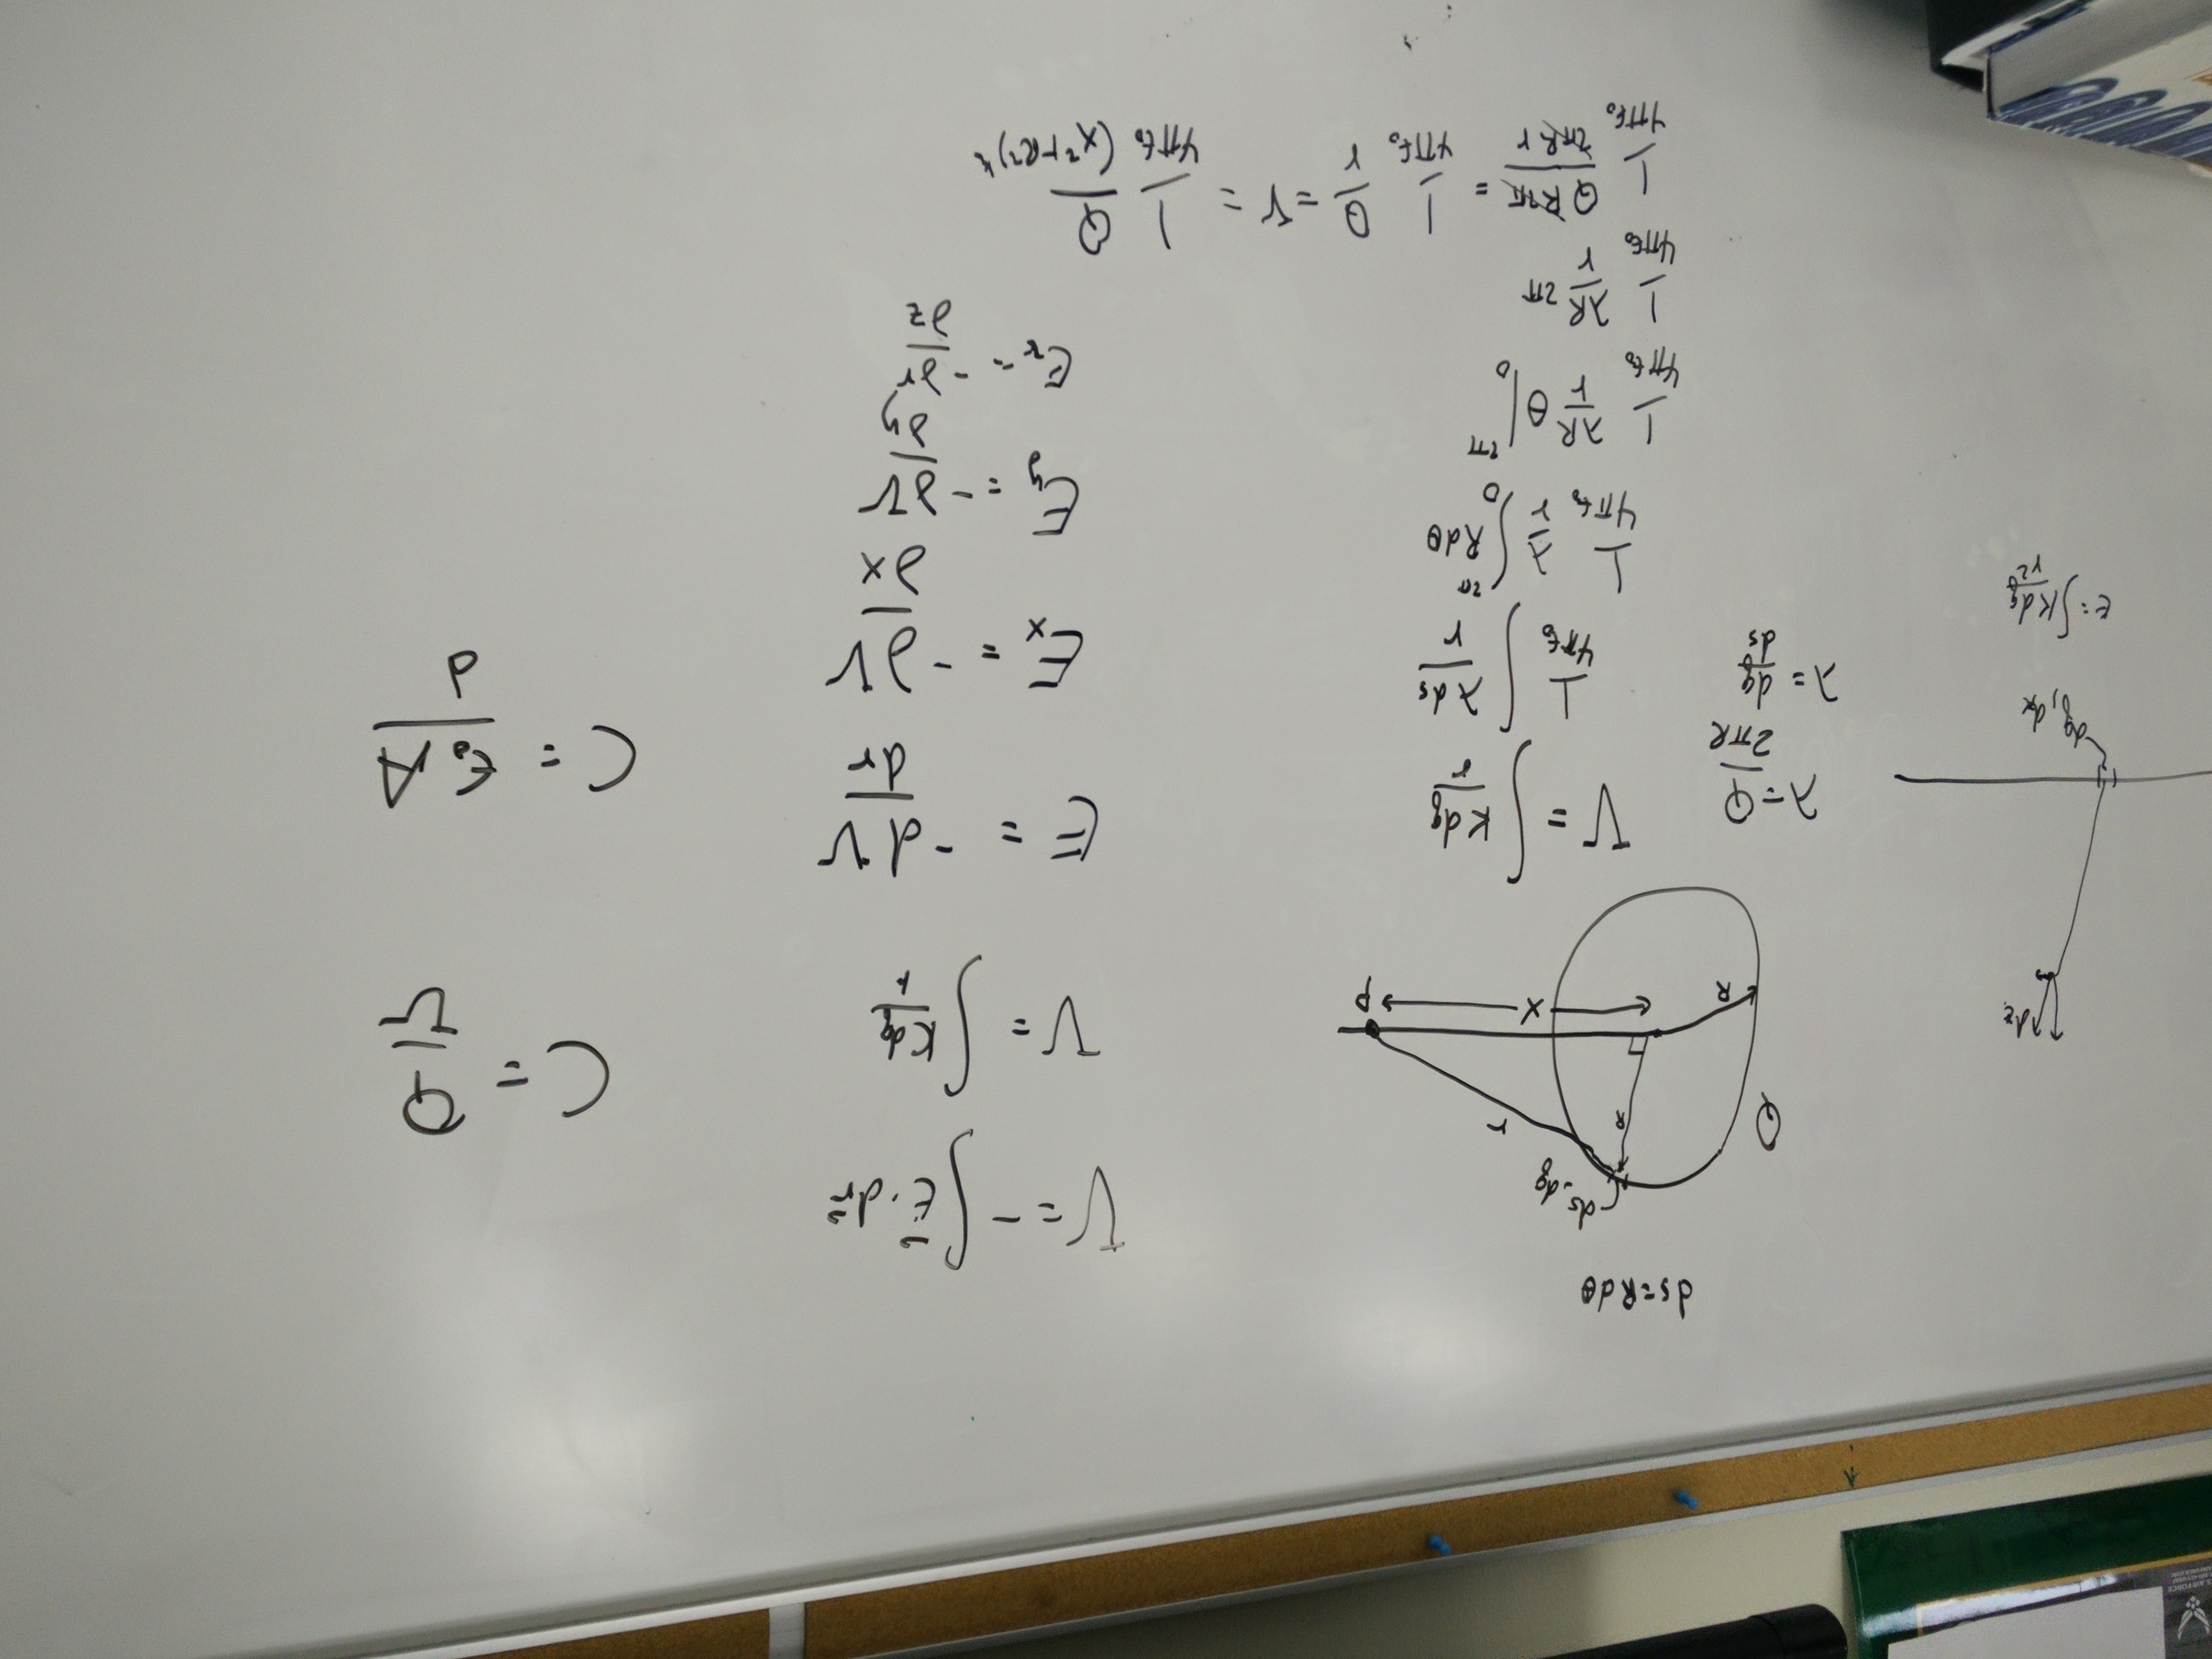 U.S. AIR FORCE
ds=Rdθ
ds, dq
Q
R
r
R
x
P
dz
dq, dx
E=∫Kdq/r²
λ=Q/2πR
λ=dq/ds
V=∫Kdq/r
1/4πε₀ ∫λds/r
1/4πε₀ λ/r ∫₀^2π Rdθ
1/4πε₀ λR/r θ|₀^2π
1/4πε₀ λR/r 2π
1/4πε₀ QR2π/2πRr = 1/4πε₀ Q/r = V = 1/4πε₀ Q/(x²+R²)^½
V=-∫E⃗·dr⃗
V=∫Kdq/r
E = -dV/dr
Eₓ = -∂V/∂x
E_y = -∂V/∂y
E_z = -∂r/∂z
C = Q/V
C = ε₀A/d